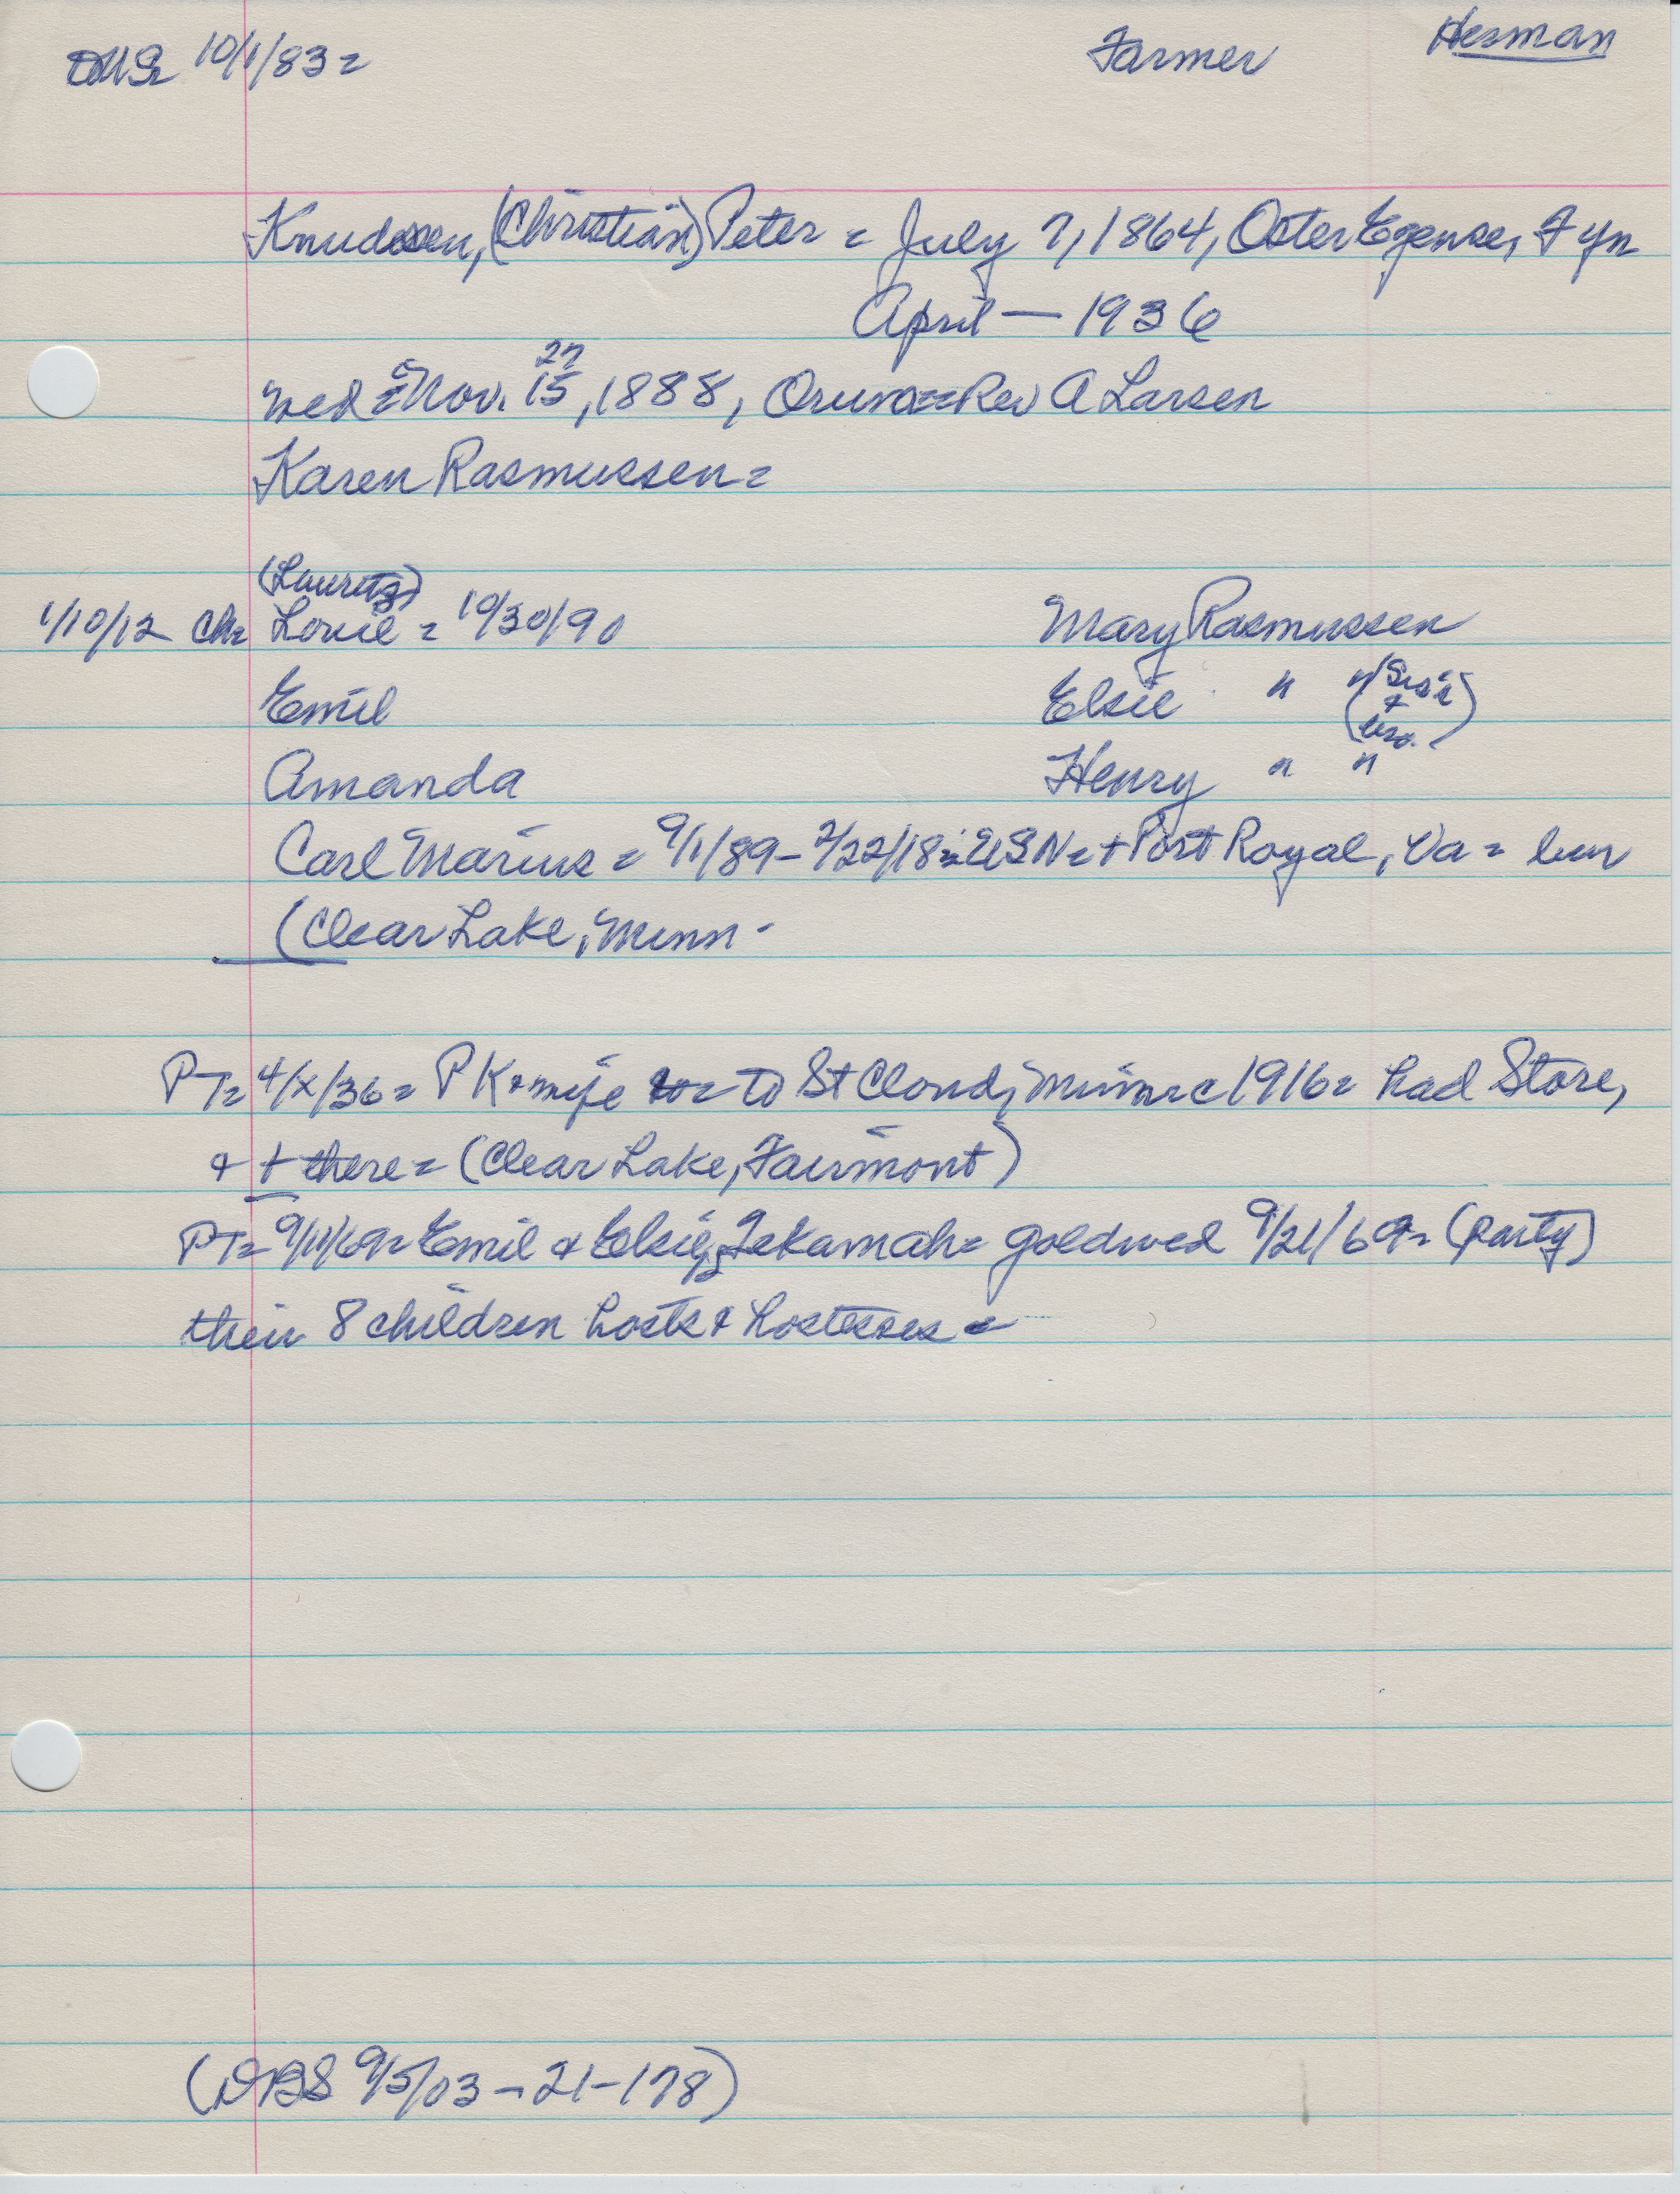 10/1/83 = Farmer Herman
Knudsen, (Christian) Peter = July 7, 1864, Oster Egense, Fyn
April — 1936
wed = Nov. 15, 1888, Orum = Rev A Larsen
27
Karen Rasmussen =
(Lauritz)
1/10/12 Ch = Louie = 10/30/90 Mary Rasmussen
Emil Elsie " " (Sis &
bro.)
Amanda Henry " "
Carl Marius = 9/1/89 - 2/22/18 = USN = + Port Royal, Va = bur
(Clear Lake, Minn -
PT = 4/x/36 = P K & wife to St Cloud, Minn = c 1916 = had Store,
& + there = (Clear Lake, Fairmont)
PT = 9/11/69 = Emil & Elsie, Tekamah = goldwed 9/21/69 = (party)
their 8 children hosts & hostesses =
(DBS 9/5/03 - 21-178)